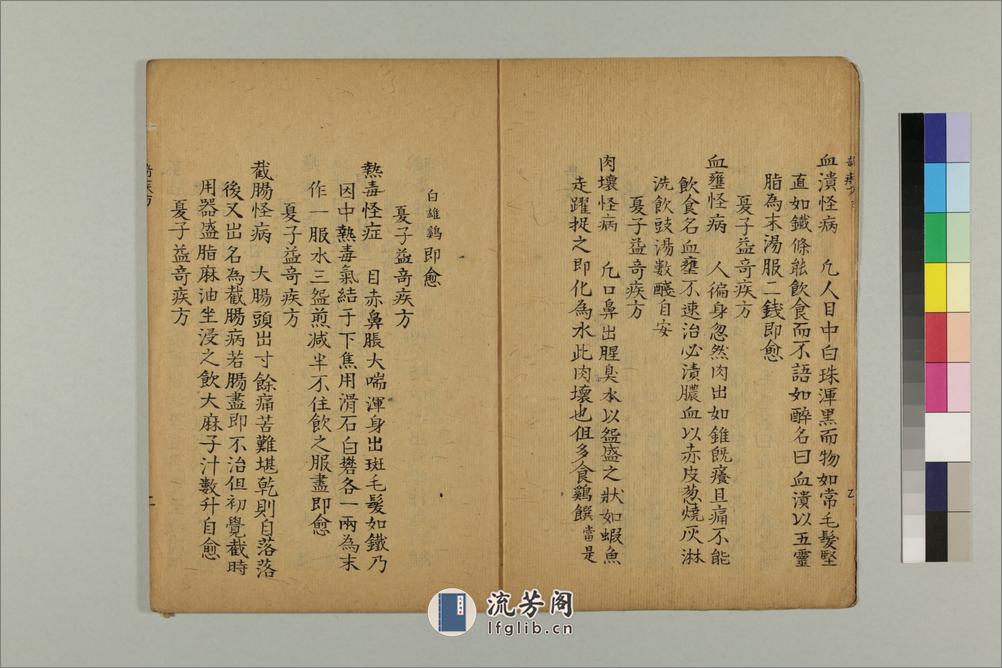 血潰怪病　凢人目中白珠渾黒而物如常毛髮堅
直如鐵條䏻飲食而不語如醉名曰血潰以五靈
脂為末湯服二錢即愈
夏子益奇疾方
血壅怪病　人徧身忽然肉出如錐旣癢且痛不能
飲食名血壅不速治必漬膿血以赤皮葱燒灰淋
洗飲豉湯數醆自安
夏子益奇疾方
肉壞怪病　凢口鼻出腥臭水以盌盛之狀如蝦魚
走躍捉之即化為水此肉壞也但多食鷄饌當是
白雄鷄即愈
夏子益奇疾方
熱毒怪症　目赤鼻脹大喘渾身出斑毛髮如鐵乃
因中熱毒氣結于下焦用滑石白礬各一兩為末
作一服水三盌煎減半不住飲之服盡即愈
夏子益奇疾方
截腸怪病　大腸頭出寸餘痛苦難堪乾則自落落
後又出名為截腸病若腸盡即不治但初覺截時
用器盛脂麻油坐浸之飲大麻子汁數升自愈
夏子益奇疾方
奇疾方
流芳阁
lfglib.cn